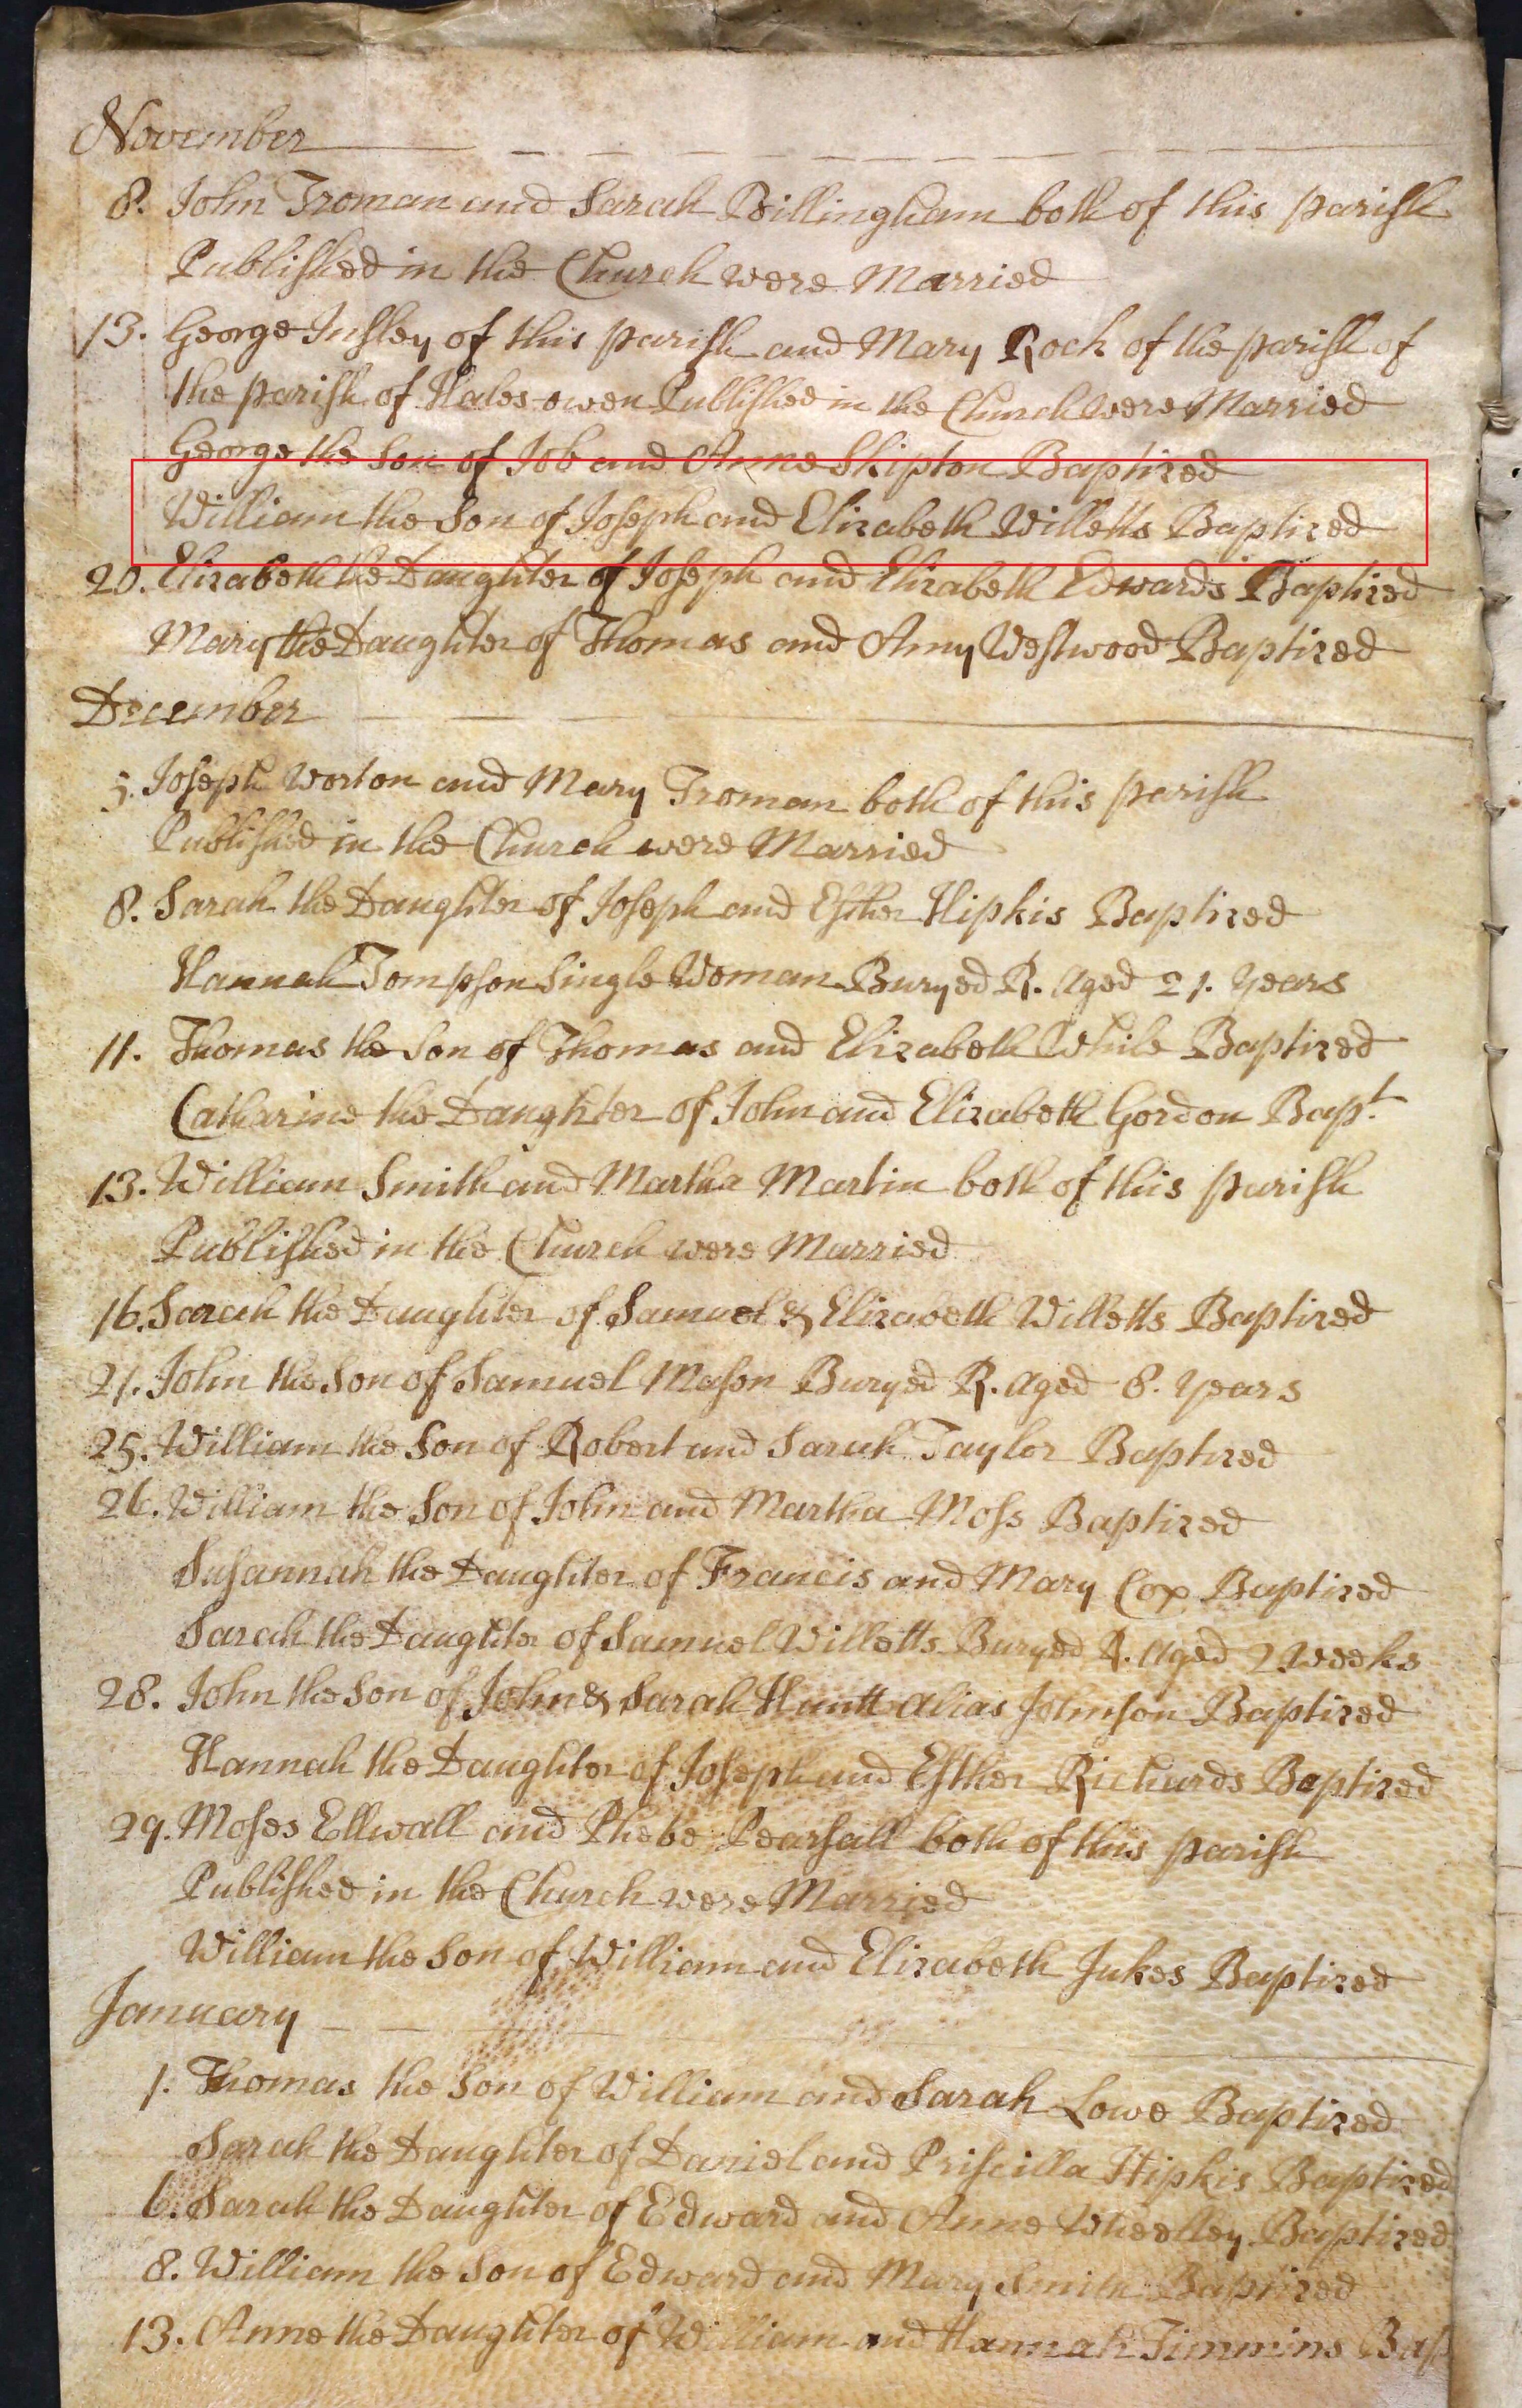 November
8. John Troman and Sarah Billingham both of this parish
Published in the Church were Married
13. George Insley of this parish and Mary Rock of the parish of
the parish of Hales-owen Published in the Church were Married
George the Son of Job and Anne Shipton Baptized
William the Son of Joseph and Elizabeth Willetts Baptized
20. Elizabeth the Daughter of Joseph and Elizabeth Edwards Baptized
Mary the Daughter of Thomas and Amy Westwood Baptized
December
5. Joseph Worton and Mary Troman both of this parish
Published in the Church were Married
8. Sarah the Daughter of Joseph and Esther Hipkis Baptized
Hannah Tompson Single Woman Buryed R. Aged 21. years
11. Thomas the Son of Thomas and Elizabeth While Baptized
Catharine the Daughter of John and Elizabeth Gordon Bapt.
13. William Smith and Martha Martin both of this parish
Published in the Church were Married
16. Sarah the Daughter of Samuel & Elizabeth Willetts Baptized
21. John the Son of Samuel Mason Buryed R. aged 8. years
25. William the Son of Robert and Sarah Taylor Baptized
26. William the Son of John and Martha Moss Baptized
Susannah the Daughter of Francis and Mary Cox Baptized
Sarah the Daughter of Samuel Willetts Buryed R. Aged 2 weeks
28. John the Son of John & Sarah Huntt alias Johnson Baptized
Hannah the Daughter of Joseph and Esther Richards Baptized
29. Moses Ellwall and Phebe Pearsall both of this parish
Published in the Church were Married
William the Son of William and Elizabeth Jukes Baptized
January
1. Thomas the Son of William and Sarah Lowe Baptized
Sarah the Daughter of Daniel and Priscilla Hipkis Baptized
6. Sarah the Daughter of Edward and Anne Wheelley Baptized
8. William the Son of Edward and Mary Smith Baptized
13. Anne the Daughter of William and Hannah Timmins Bap